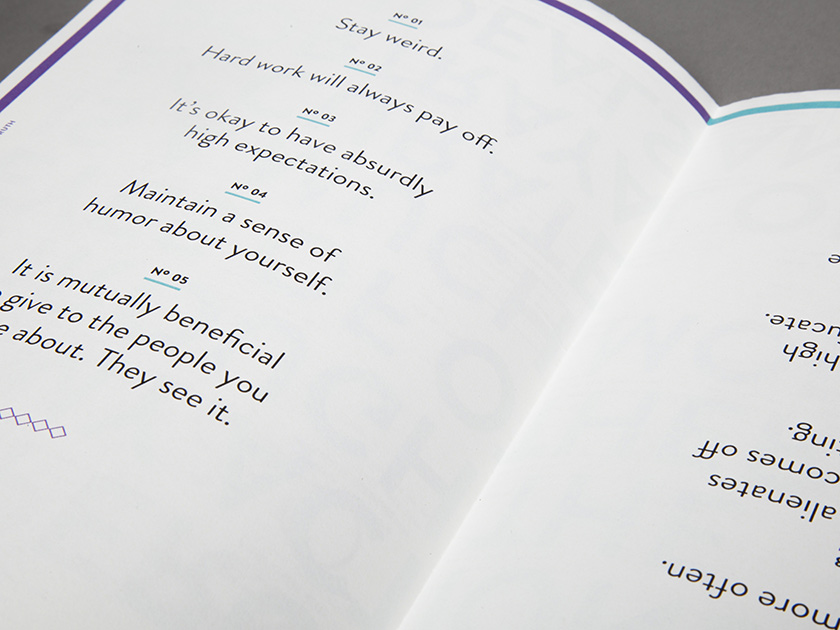 Nº 01
Stay weird.
Nº 02
Hard work will always pay off.
Nº 03
It's okay to have absurdly
high expectations.
Nº 04
Maintain a sense of
humor about yourself.
Nº 05
It is mutually beneficial
give to the people you
about. They see it.
more often.
alienates
comes off
high